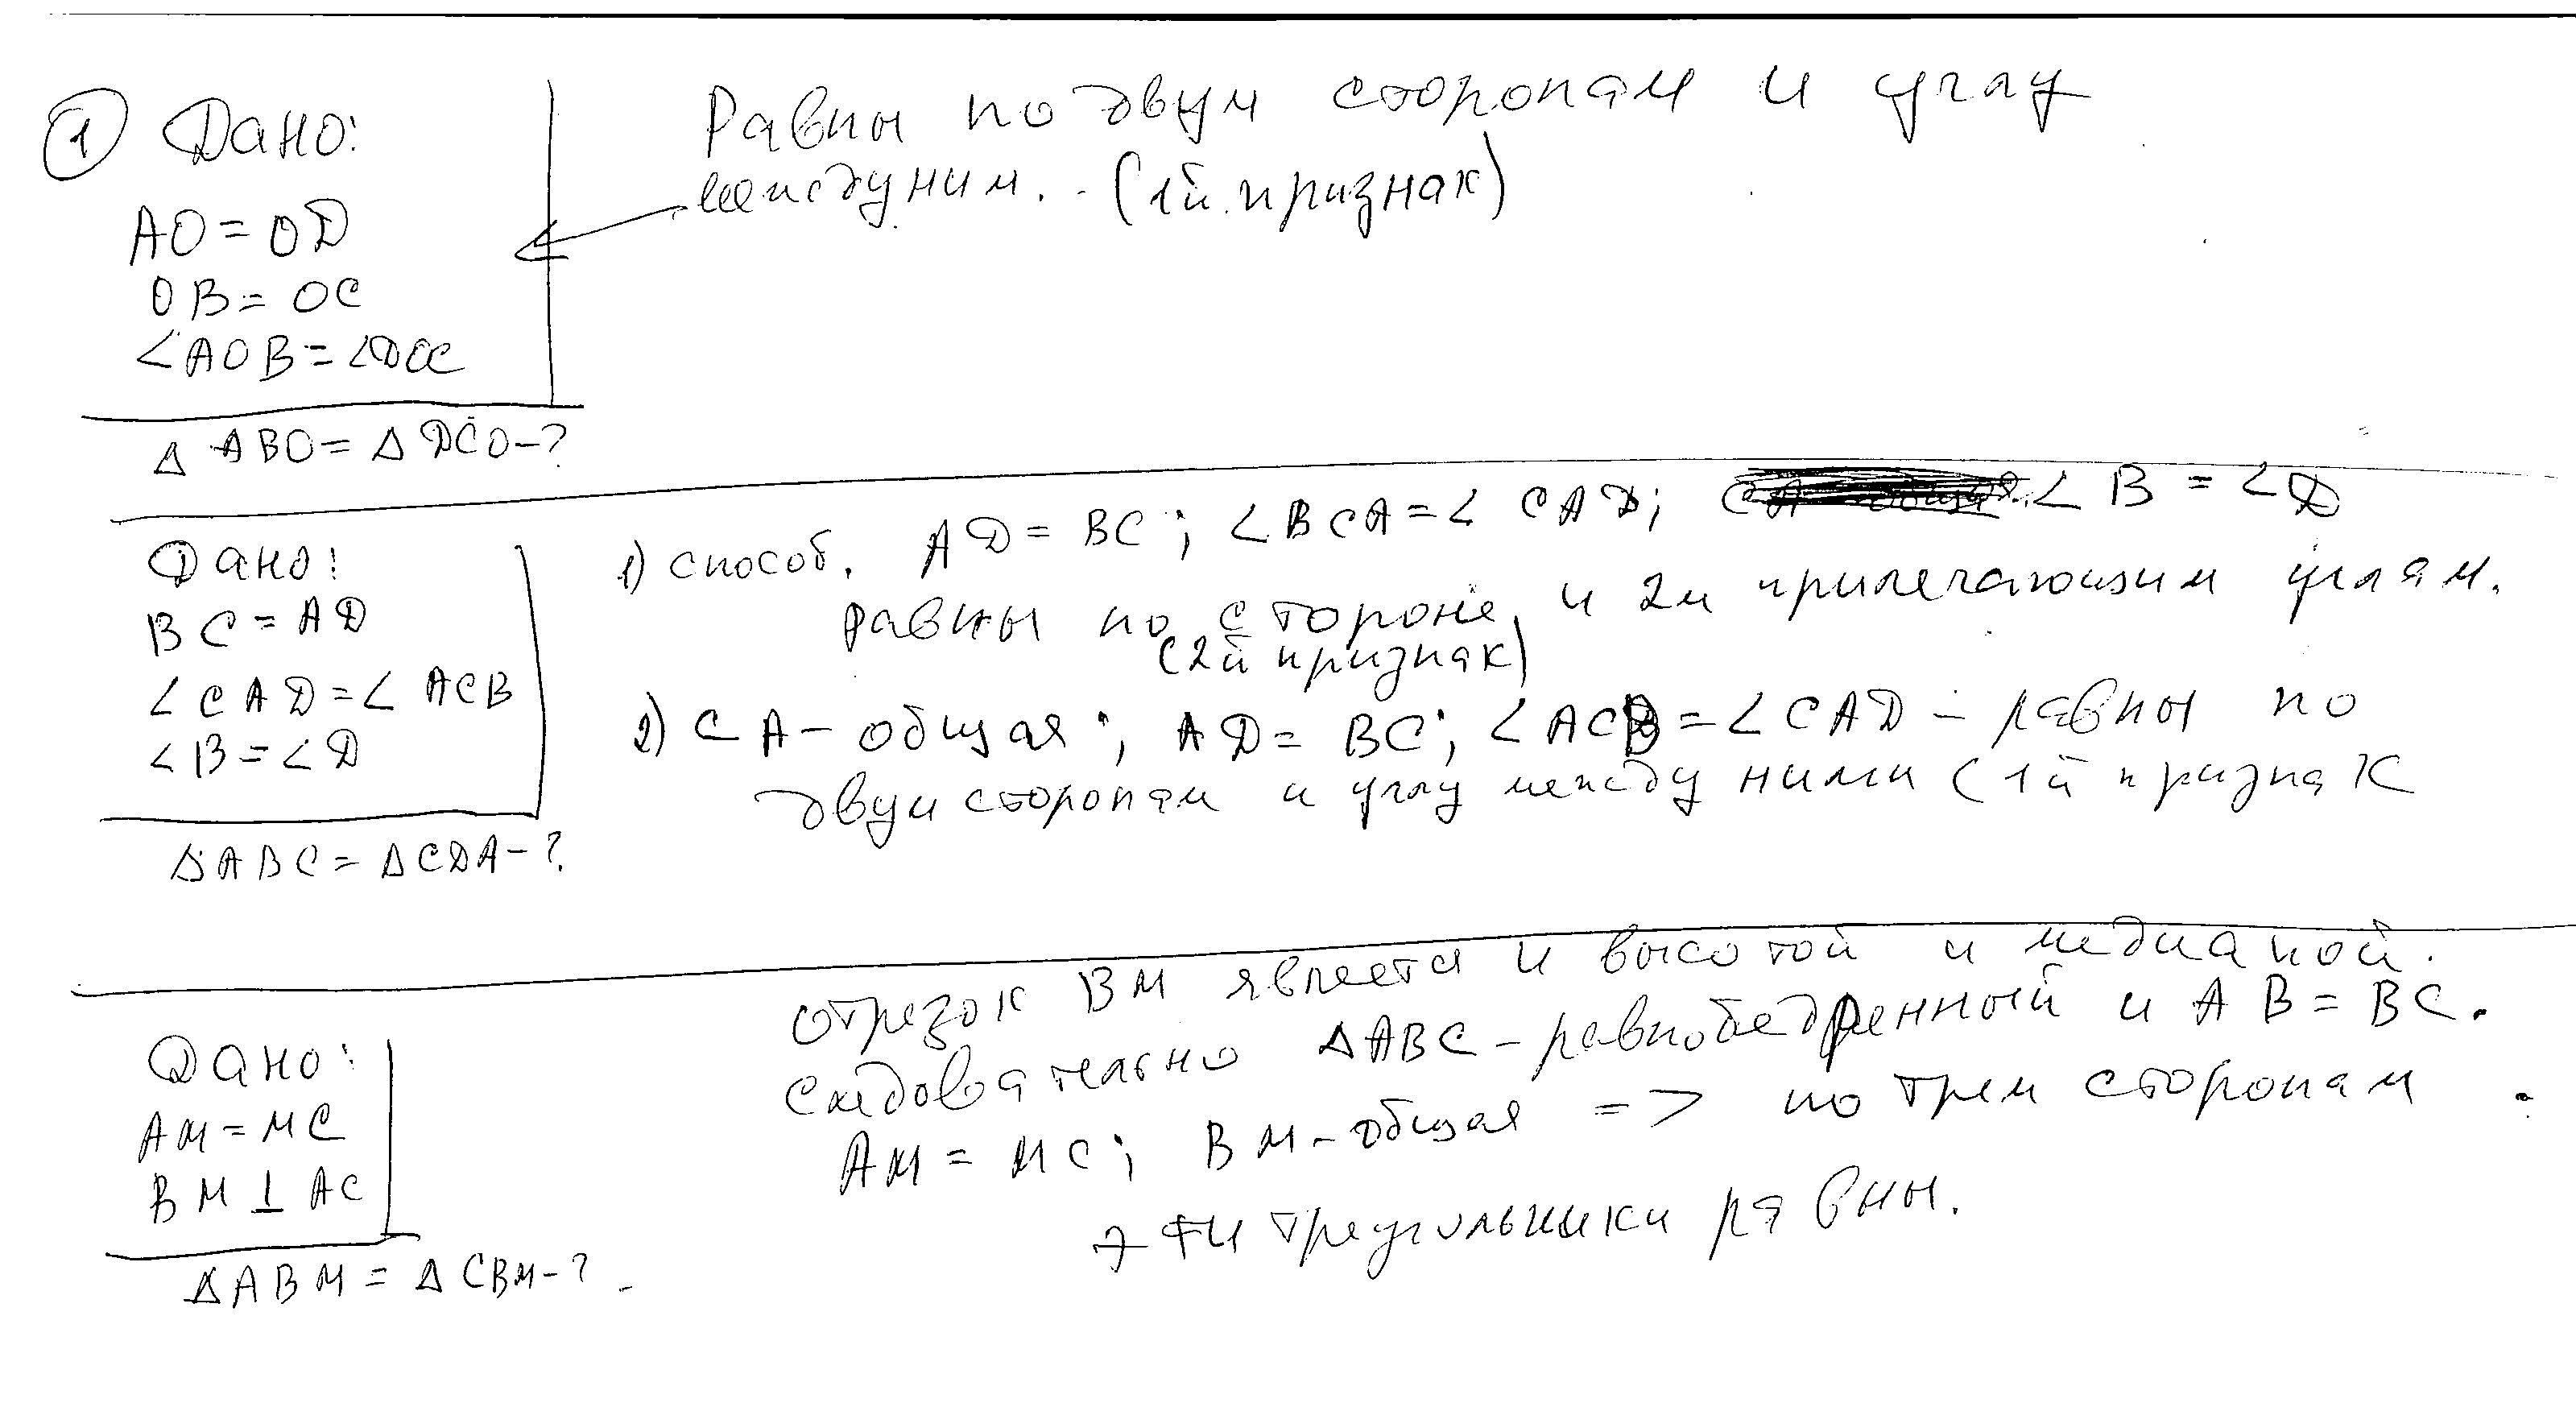 1 Дано:
AO = OD
OB = OC
∠AOB = ∠DOC
Δ ABO = Δ DCO - ?
Равны по двум сторонам и углу
между ним. (1й признак)
Дано:
BC = AD
∠CAD = ∠ACB
∠B = ∠D
ΔABC = ΔCDA - ?
1) способ. AD = BC; ∠BCA = ∠CAD; ∠B = ∠D
равны по стороне и 2м прилегающим углам.
(2й признак)
2) CA - общая; AD = BC; ∠ACB = ∠CAD - равны по
двум сторонам и углу между ними (1й признак
Дано:
AM = MC
BM ⊥ AC
ΔABM = ΔCBM - ?
отрезок BM явлется и высотой и медианой.
следовательно ΔABC - равнобедренный и AB = BC.
AM = MC; BM - общая => по трем сторонам
эти треугольники равны.